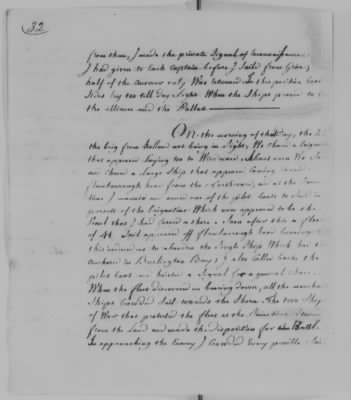 32
from them, I made the private Signal of reconnoissance
I had given to each Captain before I Sailed from Groix,
half of the answer only Was returned. In this position both
Sides lay too till day Light When the Ships proved to be
the alliance and the Pallas
On the morning of that day, the
the brig from holland not being in Sight, We chaced a brigan
that appeared laying too to Windward. About noon We
and chaced a large Ship that appeared Coming round
flamborough head from the Northward, and at the Same
time I manned and armed one of the pilot boats to Sail in
pursuit of the brigantine Which now appeared to be the
Vessel that I had forced ashore. Soon after this a fleet
of 41 Sail appeared off flamborough head bearing
this induced me to abandon the Single Ship Which had
anchored in Burlington Bay; I also Called back the
pilot boat and hoisted a Signal for a general chace.
When the fleet discovered us bearing down, all the merchant
Ships Crowded Sail towards the Shore. The two Ships
of War that protected the fleet at the Same time Steered
from the Land and made the disposition for Battle
In approaching the Enemy I Crowded Every possible Sail